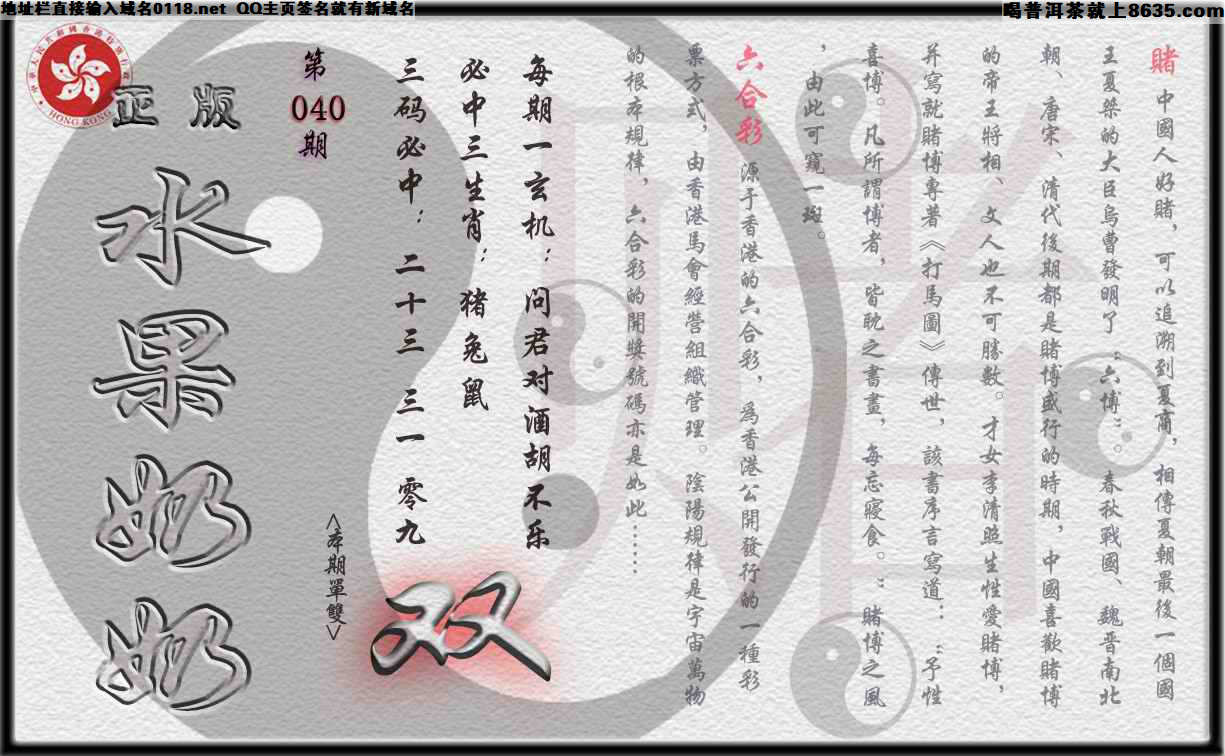 地址栏直接输入域名0118.net QQ主页签名就有新域名
喝普洱茶就上8635.com
賭 中國人好賭，可以追溯到夏商，相傳夏朝最後一個國
王夏桀的大臣烏曹發明了“六博”。春秋戰國、魏晉南北
朝、唐宋、清代後期都是賭博盛行的時期，中國喜歡賭博
的帝王將相、文人也不可勝數。才女李清照生性愛賭博，
并寫就賭博專著《打馬圖》傳世，該書序言寫道：“予性
喜博。凡所謂博者，皆耽之書畫，每忘寢食。”賭博之風
，由此可窺一斑。
六合彩 源于香港的六合彩，爲香港公開發行的一種彩
票方式，由香港馬會經營組織管理。陰陽規律是宇宙萬物
的根本規律，六合彩的開獎號碼亦是如此……
每期一玄机：问君对酒胡不乐
必中三生肖：猪兔鼠
三码必中：二十三 三一 零九
<本期單雙>
双
第
040
期
正版
水果奶奶
中華人民共和國香港特別行政區
HONG KONG